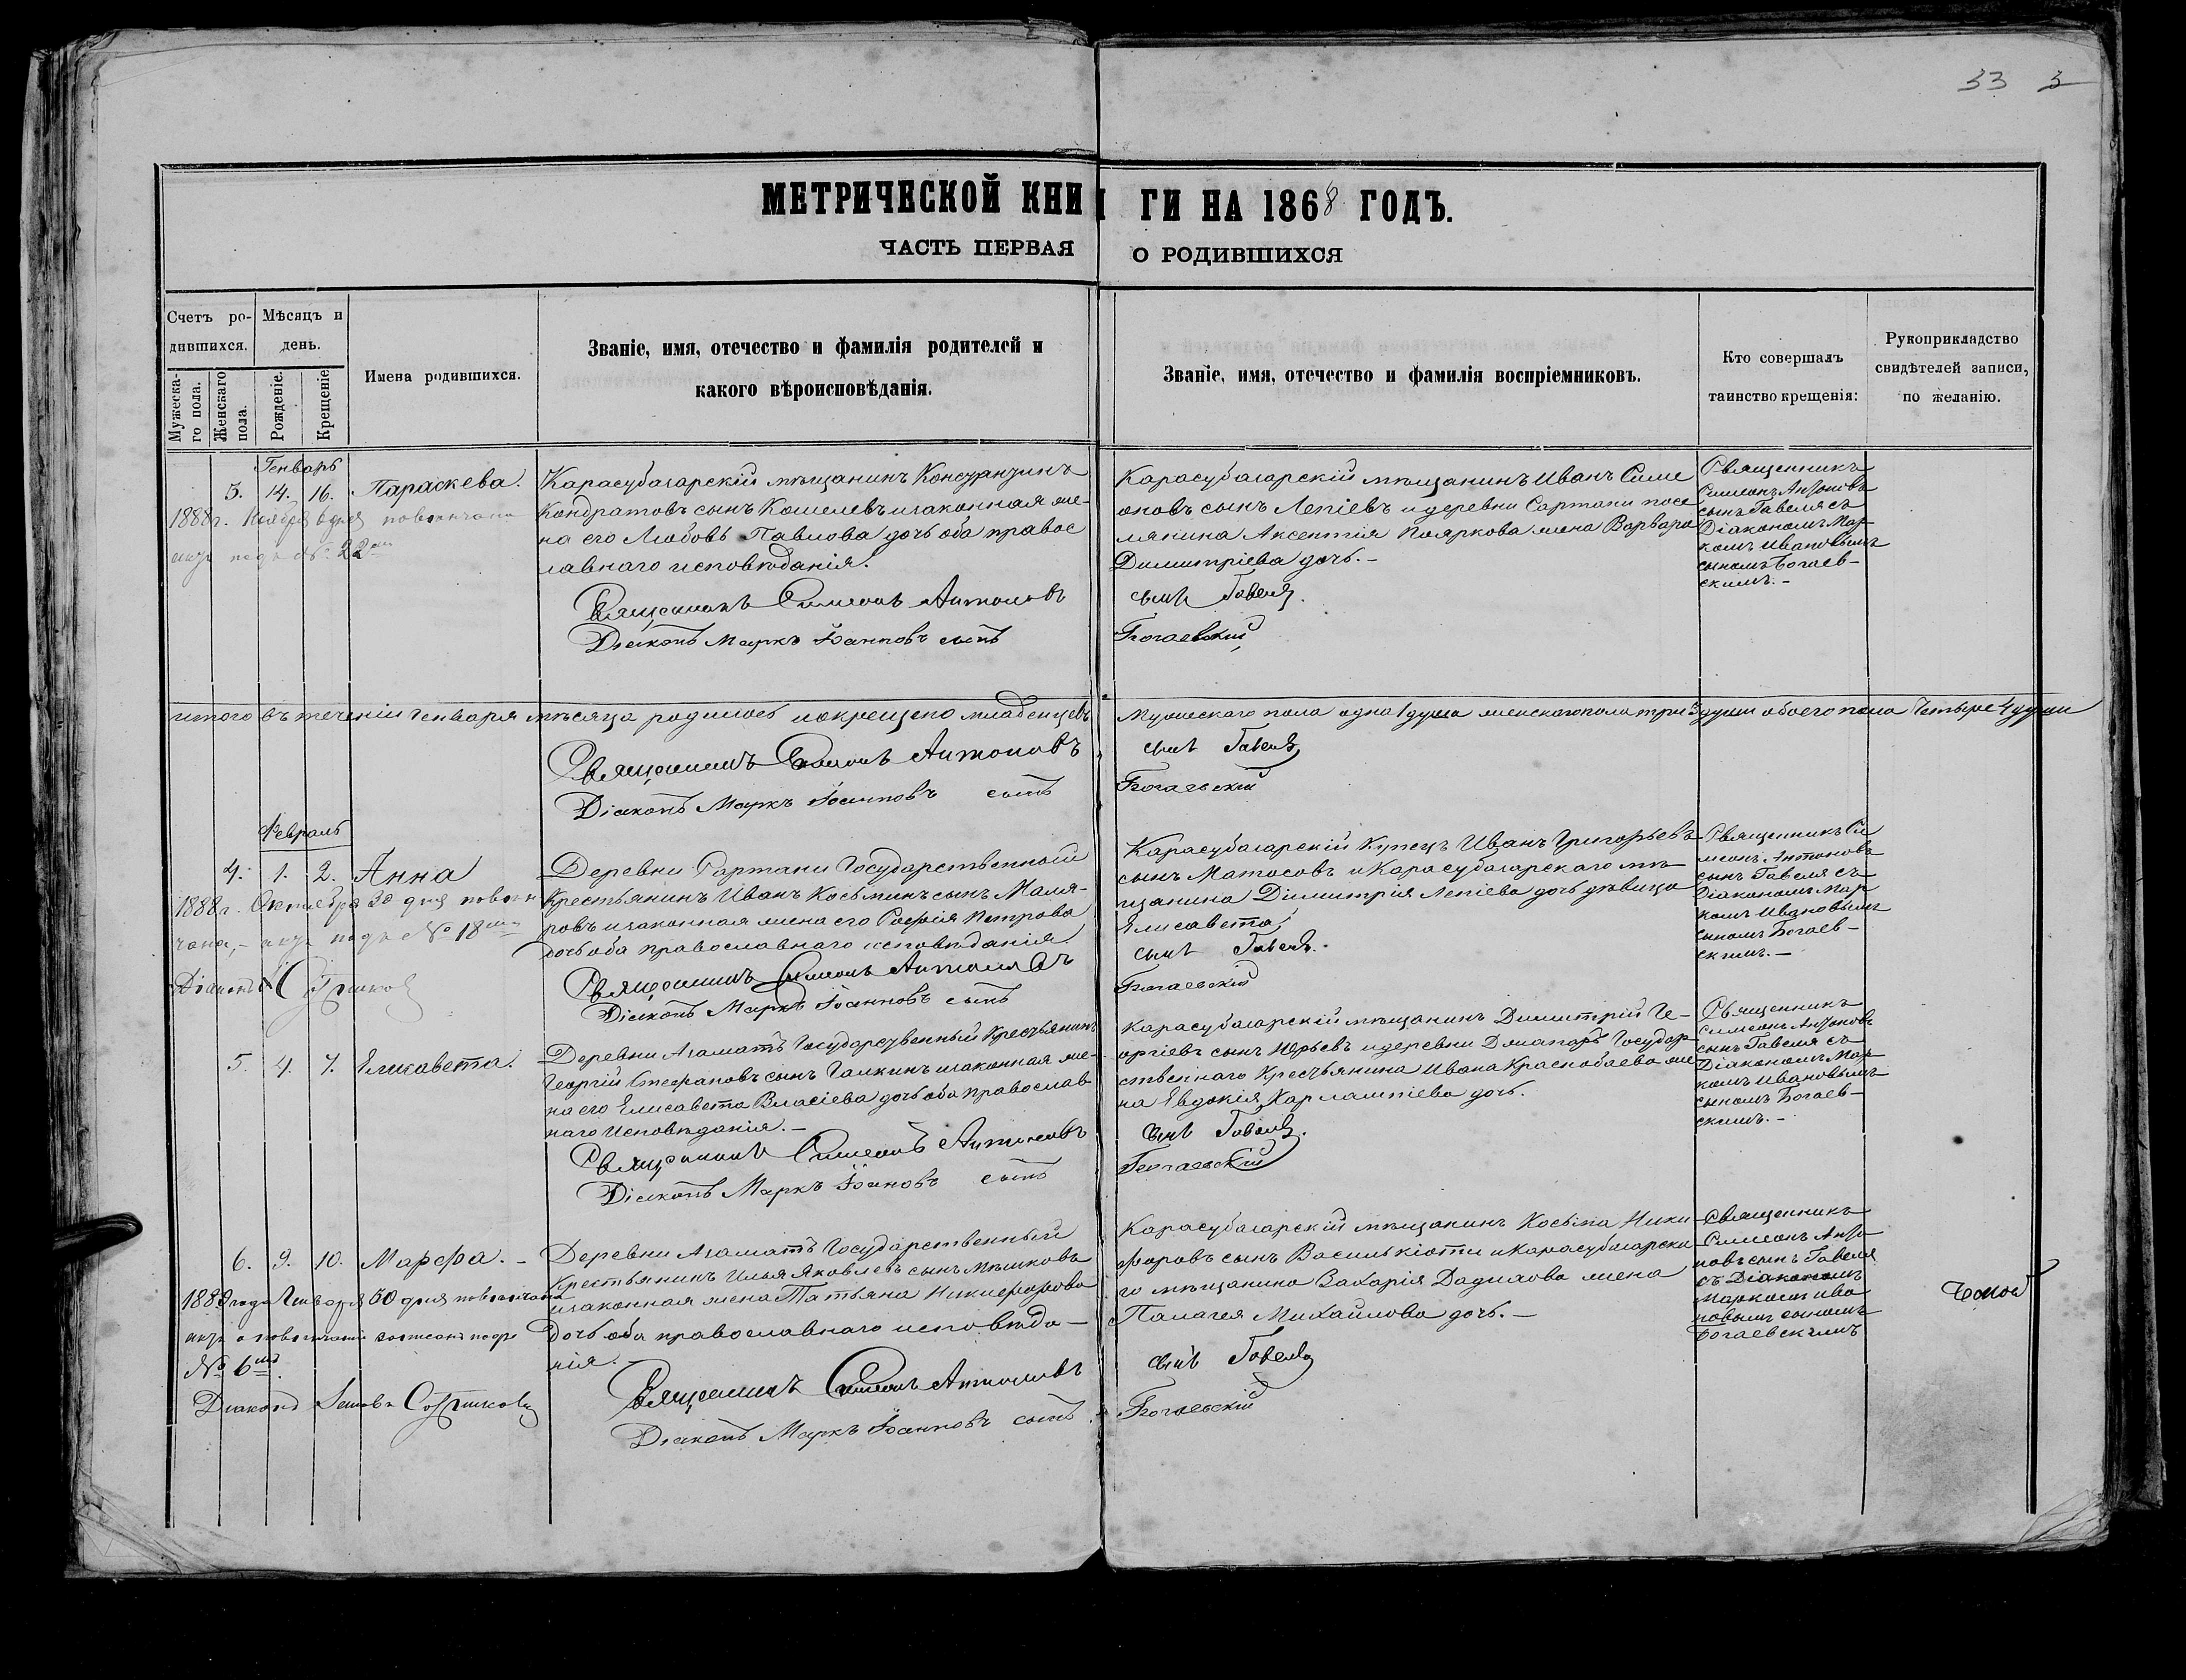 33 3
МЕТРИЧЕСКОЙ КНИГИ НА 1868 ГОДЪ.
ЧАСТЬ ПЕРВАЯ О РОДИВШИХСЯ
Счетъ ро-
дившихся.
Мужеска-
го пола.
Женскаго
пола.
Мѣсяцъ и
день.
Рожденіе.
Крещеніе
Имена родившихся.
Званіе, имя, отечество и фамилія родителей и
какого вѣроисповѣданія.
Званіе, имя, отечество и фамилія воспріемниковъ.
Кто совершалъ
таинство крещенія:
Рукоприкладство
свидѣтелей записи,
по желанію.
Генварь
3. 14. 16. Параскева.
1888 г. Ноября 6 дня повѣнчана
актъ подъ № 22
Карасубазарскій мѣщанинъ Константинъ
Кондратовъ сынъ Кошелевъ и законная же-
на его Любовь Павлова дочь оба правос
лавнаго исповѣданія.
Священникъ Симеонъ Антоновъ
Діаконъ Маркъ Іоанновъ сынъ
Карасубазарскій мѣщанинъ Иванъ Симе
оновъ сынъ Лепіевъ и деревни Сартани посе
лянина Аксентія Пояркова жена Варвара
Димитріева дочь. –
сынъ Гавеля.
Богаевскій
Священникъ
Симеонъ Антоновъ
сынъ Гавеля съ
Діакономъ Мар-
комъ Ивановымъ
сыномъ Богаев-
скимъ. –
итого въ теченіи Генваря мѣсяца родилось и окрещено младенцевъ Мужескаго пола одна 1 душа женскаго пола три 3 души обоего пола Четыре 4 души
Священникъ Симеонъ Антоновъ сынъ Гавеля
Діаконъ Маркъ Іоанновъ сынъ Богаевскій
Февраль
4. 1. 2. Анна
1888 г. Октября 30 дня повѣн
чана, – актъ подъ № 18
Діаконъ
Деревни Сартани Государственный
Крестьянинъ Иванъ Косьминъ сынъ Маля-
ровъ и законная жена его Софія Петрова
дочь оба православнаго исповѣданія.
Священникъ Симеонъ Антоновъ
Діаконъ Маркъ Іоанновъ сынъ
Карасубазарскій Купецъ Иванъ Григорьевъ
сынъ Матосовъ и Карасубазарскаго мѣ-
щанина Димитрія Лепіева дочь дѣвица
Елисавета
сынъ Гавеля.
Богаевскій
Священникъ Си
меонъ Антоновъ
сынъ Гавеля съ
Діакономъ Мар
комъ Ивановымъ
сыномъ Богаев-
скимъ. –
5. 4. 7. Елисавета.
Деревни Азаматъ Государственный Крестьянинъ
Георгій Стефановъ сынъ Галкинъ и законная же-
на его Елисавета Власіева дочь оба православ
наго Исповѣданія. –
Священникъ Симеонъ Антоновъ
Діаконъ Маркъ Іоановъ сынъ
Карасубазарскій мѣщанинъ Димитрій Ге-
оргіевъ сынъ Юрьевъ и деревни Джапаръ Государ
ственнаго Крестьянина Ивана Краснобаева же
на Евдокія Харлампіева дочь.
сынъ Гавеля.
Богаевскій
Священникъ
Симеонъ Антоновъ
сынъ Гавеля съ
Діакономъ Мар
комъ Ивановымъ
сыномъ Богаев-
скимъ. –
6. 9. 10. Марфа. –
1889 года Генваря 30 дня повѣнчана
актъ о повѣнчаніи записанъ подъ
№ 6
Діаконъ
Деревни Азаматъ Государственный
Крестьянинъ Илья Яковлевъ сынъ Мѣшковъ
и законная жена Татьяна Никифорова
Дочь оба православнаго исповѣда-
нія.
Священникъ Симеонъ Антоновъ
Діаконъ Маркъ Іоанновъ сынъ
Карасубазарскій мѣщанинъ Косьма Ники
форовъ сынъ Василькіоти и Карасубазарска
го мѣщанина Захарія Дадихова жена
Палагея Михайлова дочь. –
сынъ Гавеля
Богаевскій
Священникъ
Симеонъ Анто
новъ сынъ Гавеля
съ Діакономъ
Маркомъ Ива
новымъ сыномъ
Богаевскимъ